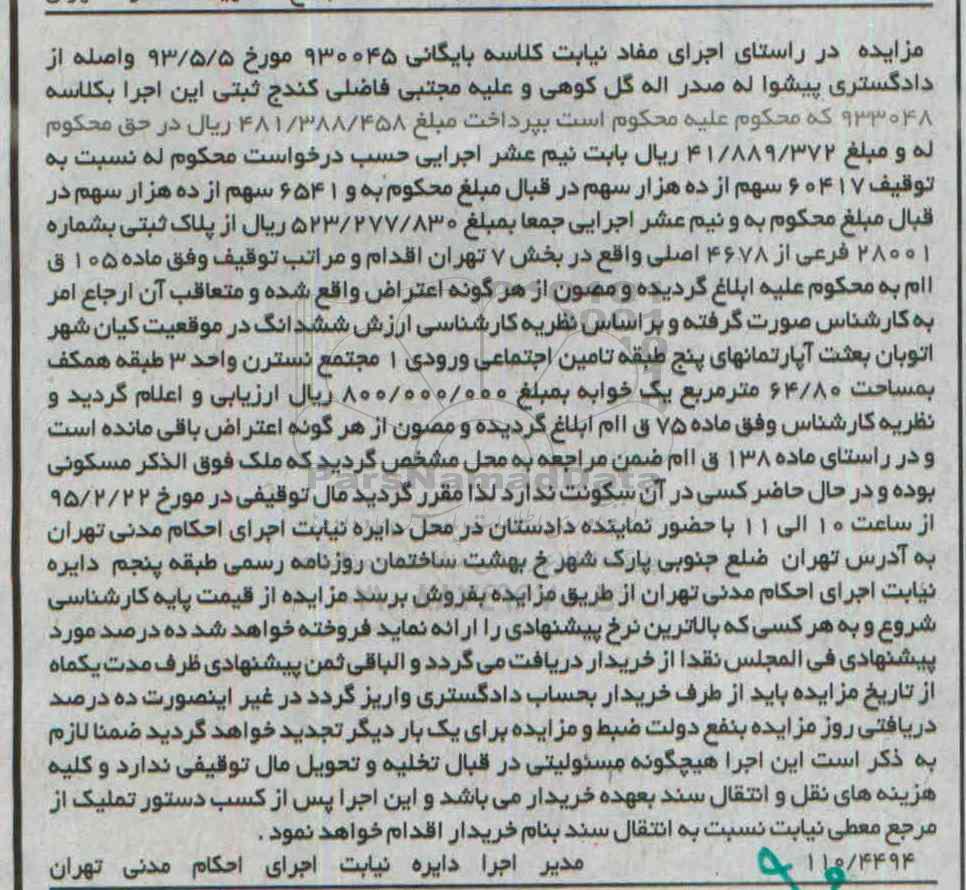 مزایده در راستای اجرای مفاد نیابت کلاسه بایگانی ۹۳۰۰۴۵ مورخ ۹۳/۵/۵ واصله از
دادگستری پیشوا له صدر اله گل کوهی و علیه مجتبی فاضلی کندج ثبتی این اجرا بکلاسه
۹۳۳۰۴۸ که محکوم علیه محکوم است بپرداخت مبلغ ۴۸۱/۳۸۸/۴۵۸ ریال در حق محکوم
له و مبلغ ۴۱/۸۸۹/۳۷۲ ریال بابت نیم عشر اجرایی حسب درخواست محکوم له نسبت به
توقیف ۶۰۴۱۷ سهم از ده هزار سهم در قبال مبلغ محکوم به و ۶۵۴۱ سهم از ده هزار سهم در
قبال مبلغ محکوم به و نیم عشر اجرایی جمعا بمبلغ ۵۲۳/۲۷۷/۸۳۰ ریال از پلاک ثبتی بشماره
۲۸۰۰۱ فرعی از ۴۶۷۸ اصلی واقع در بخش ۷ تهران اقدام و مراتب توقیف وفق ماده ۱۰۵ ق
اام به محکوم علیه ابلاغ گردیده و مصون از هر گونه اعتراض واقع شده و متعاقب آن ارجاع امر
به کارشناس صورت گرفته و بر اساس نظریه کارشناسی ارزش ششدانگ در موقعیت کیان شهر
اتوبان بعثت آپارتمانهای پنج طبقه تامین اجتماعی ورودی ۱ مجتمع نسترن واحد ۳ طبقه همکف
بمساحت ۶۴/۸۰ مترمربع یک خوابه بمبلغ ۸۰۰/۰۰۰/۰۰۰ ریال ارزیابی و اعلام گردید و
نظریه کارشناس وفق ماده ۷۵ ق اام ابلاغ گردیده و مصون از هر گونه اعتراض باقی مانده است
و در راستای ماده ۱۳۸ ق اام ضمن مراجعه به محل مشخص گردید که ملک فوق الذکر مسکونی
ParsNamadData
بوده و در حال حاضر کسی در آن سکونت ندارد لذا مقرر گردید مال توقیفی در مورخ ۹۵/۲/۲۲
از ساعت ۱۰ الی ۱۱ با حضور نماینده دادستان در محل دایره نیابت اجرای احکام مدنی تهران
به آدرس تهران ضلع جنوبی پارک شهر خ بهشت ساختمان روزنامه رسمی طبقه پنجم دایره
نیابت اجرای احکام مدنی تهران از طریق مزایده بفروش برسد مزایده از قیمت پایه کارشناسی
شروع و به هر کسی که بالاترین نرخ پیشنهادی را ارائه نماید فروخته خواهد شد ده درصد مورد
پیشنهادی فی المجلس نقدا از خریدار دریافت می گردد و الباقی ثمن پیشنهادی ظرف مدت یکماه
از تاریخ مزایده باید از طرف خریدار بحساب دادگستری واریز گردد در غیر اینصورت ده درصد
دریافتی روز مزایده بنفع دولت ضبط و مزایده برای یک بار دیگر تجدید خواهد گردید ضمنا لازم
به ذکر است این اجرا هیچگونه مسئولیتی در قبال تخلیه و تحویل مال توقیفی ندارد و کلیه
هزینه های نقل و انتقال سند بعهده خریدار می باشد و این اجرا پس از کسب دستور تملیک از
مرجع معطی نیابت نسبت به انتقال سند بنام خریدار اقدام خواهد نمود .
۱۱۰/۴۴۹۴ مدیر اجرا دایره نیابت اجرای احکام مدنی تهران